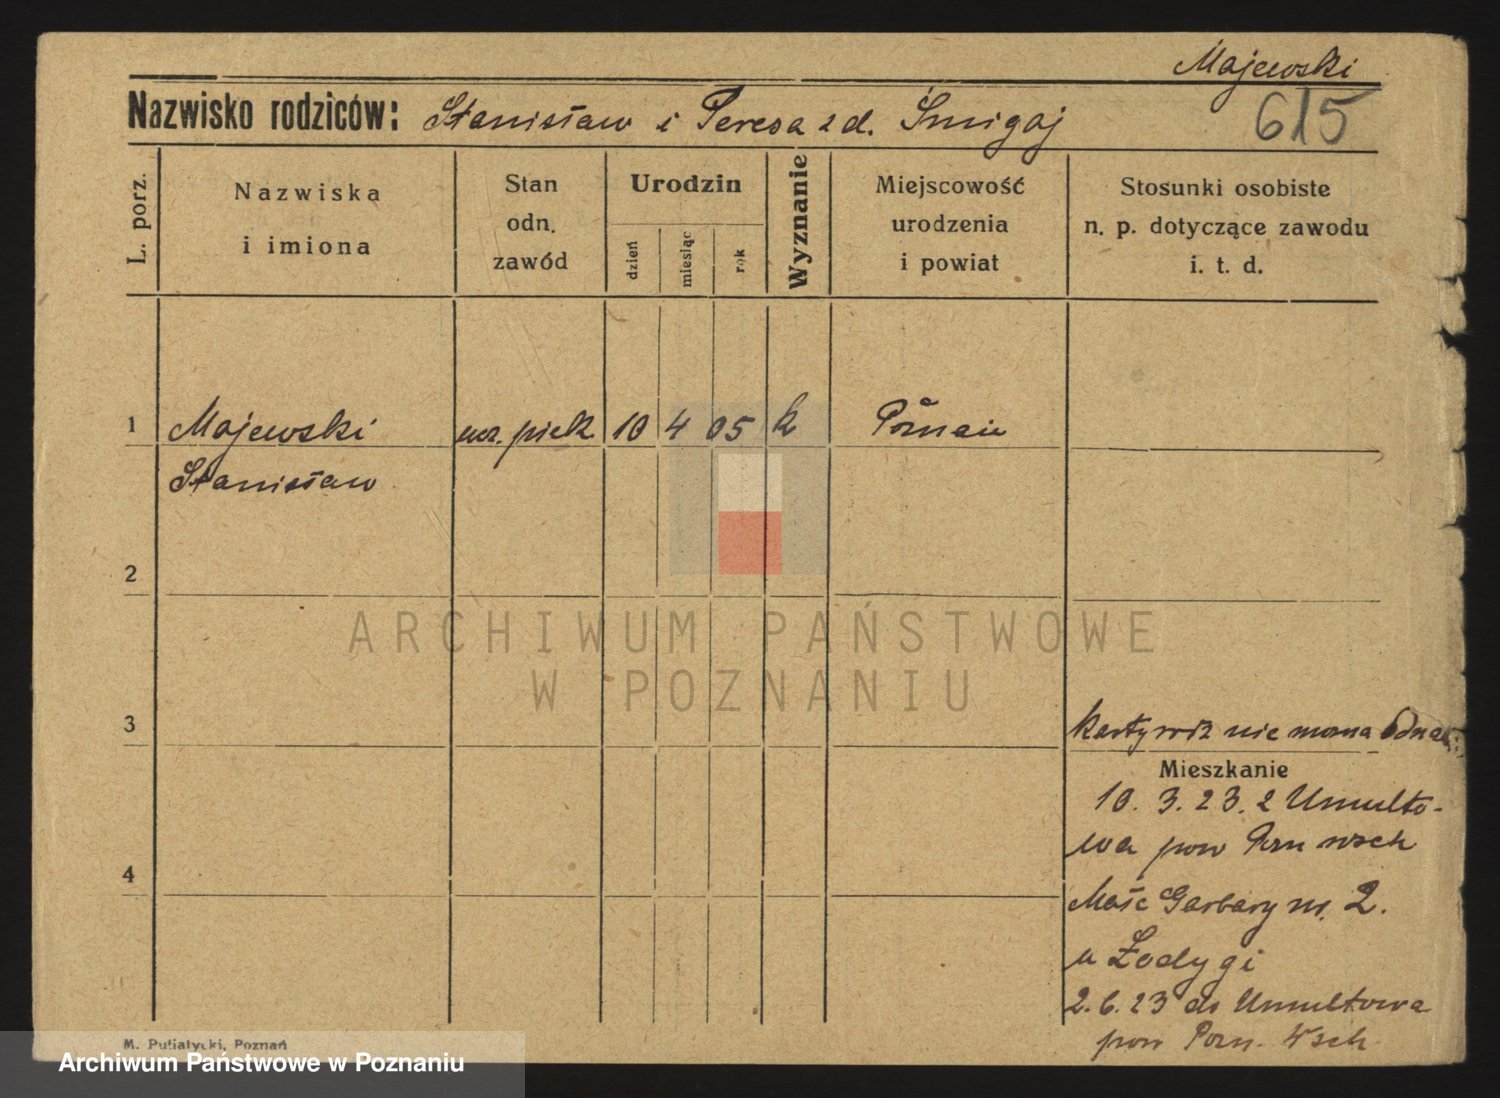 Majewski
Nazwisko rodziców: Stanisław i Teresa z d. Śmigaj
615
L. porz.
Nazwiska i imiona
Stan odn. zawód
Urodzin
dzień
miesiąc
rok
Wyznanie
Miejscowość urodzenia i powiat
Stosunki osobiste n. p. dotyczące zawodu i. t. d.
1 Majewski ucz. piek 10 4 05 k Poznań
Stanisław
2
3
karty rodz nie można
Mieszkanie
10. 3. 23. z Umulto-
wa pow Pozn wsch
4
Małe Garbary nr. 2.
u Łodygi
2. 6. 23 do Umultowa
pow Pozn. Wsch
M. Putiatycki, Poznań
ARCHIWUM PAŃSTWOWE
W POZNANIU
Archiwum Państwowe w Poznaniu